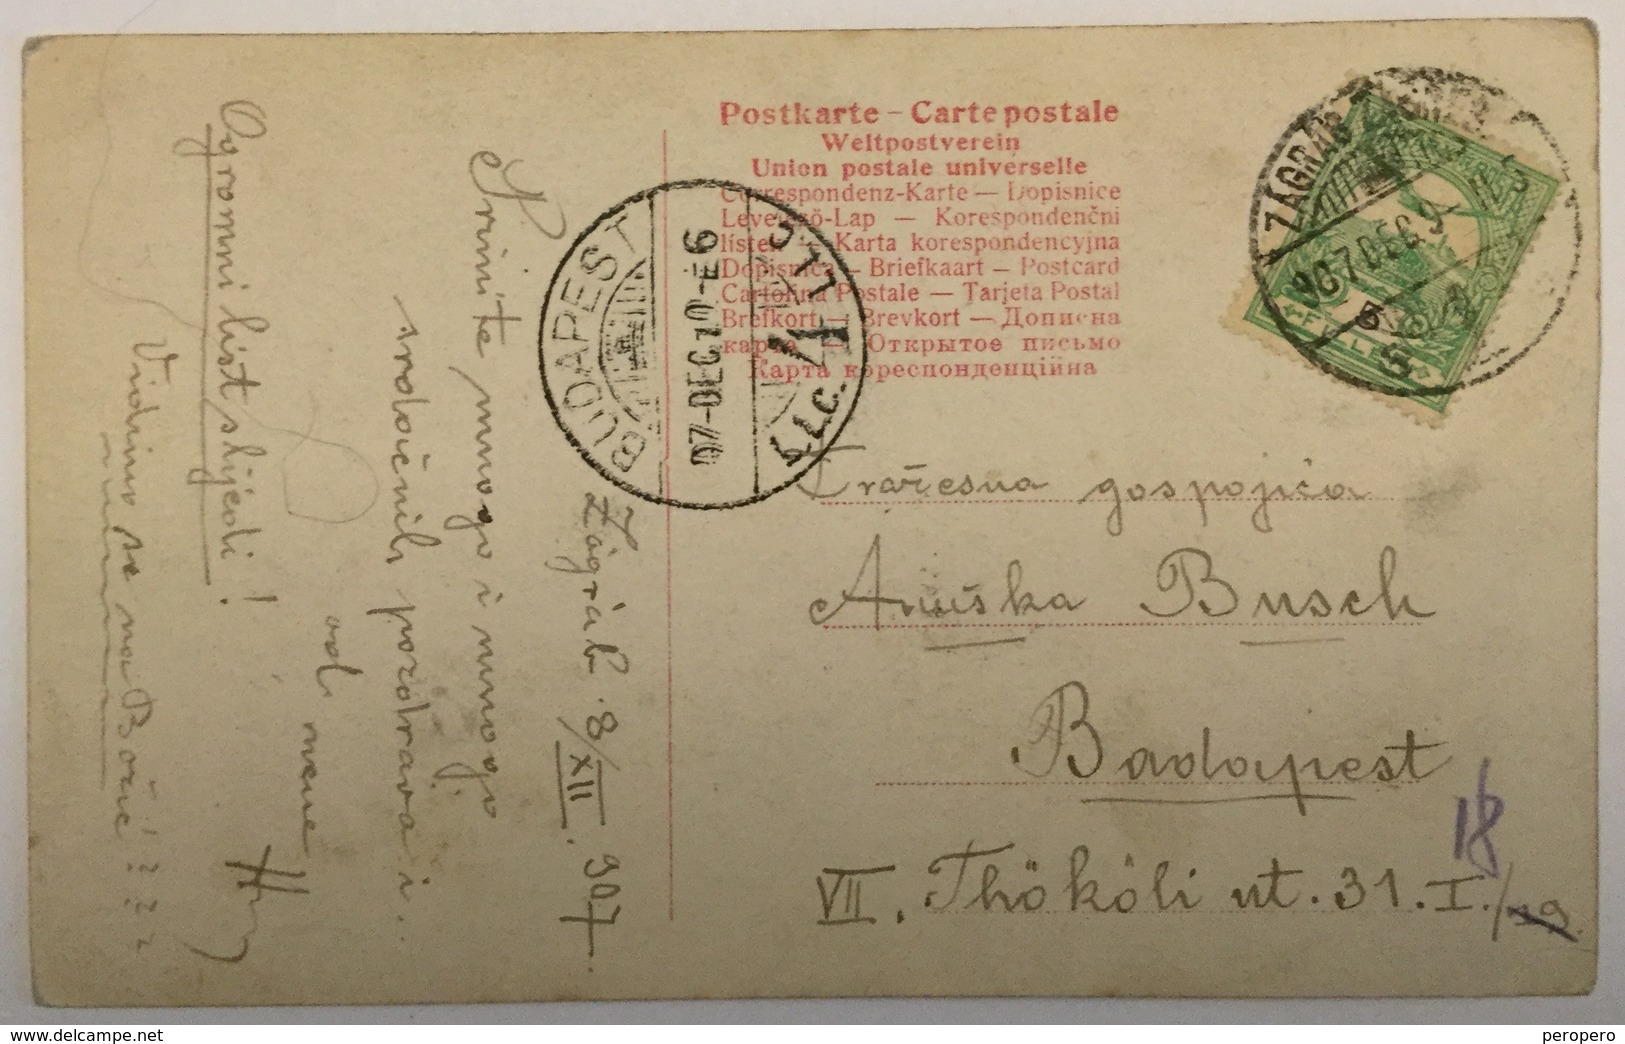 Postkarte – Carte postale
Weltpostverein
Union postale universelle
Correspondenz-Karte — Dopisnice
Levelező-Lap — Korespondenční
lístek — Karta korespondencyjna
Dopisnica — Briefkaart — Postcard
Cartolina Postale — Tarjeta Postal
Brefkort — Brevkort — Дописна
карта — Открытое письмо
Карта кореспонденційна
BUDAPEST
907 DEC 9
ZÁGRÁB
Zágráb 8/XII. 907.
Primite mnogo i mnogo
srdačnih pozdrava i.
od mene
Ogromni list slijedi!
Vidimo se na Božić
gospojića
Anuška Busch
Budapest
VII. Thököli ut. 31. I./19
18
www.delcampe.net
peropero